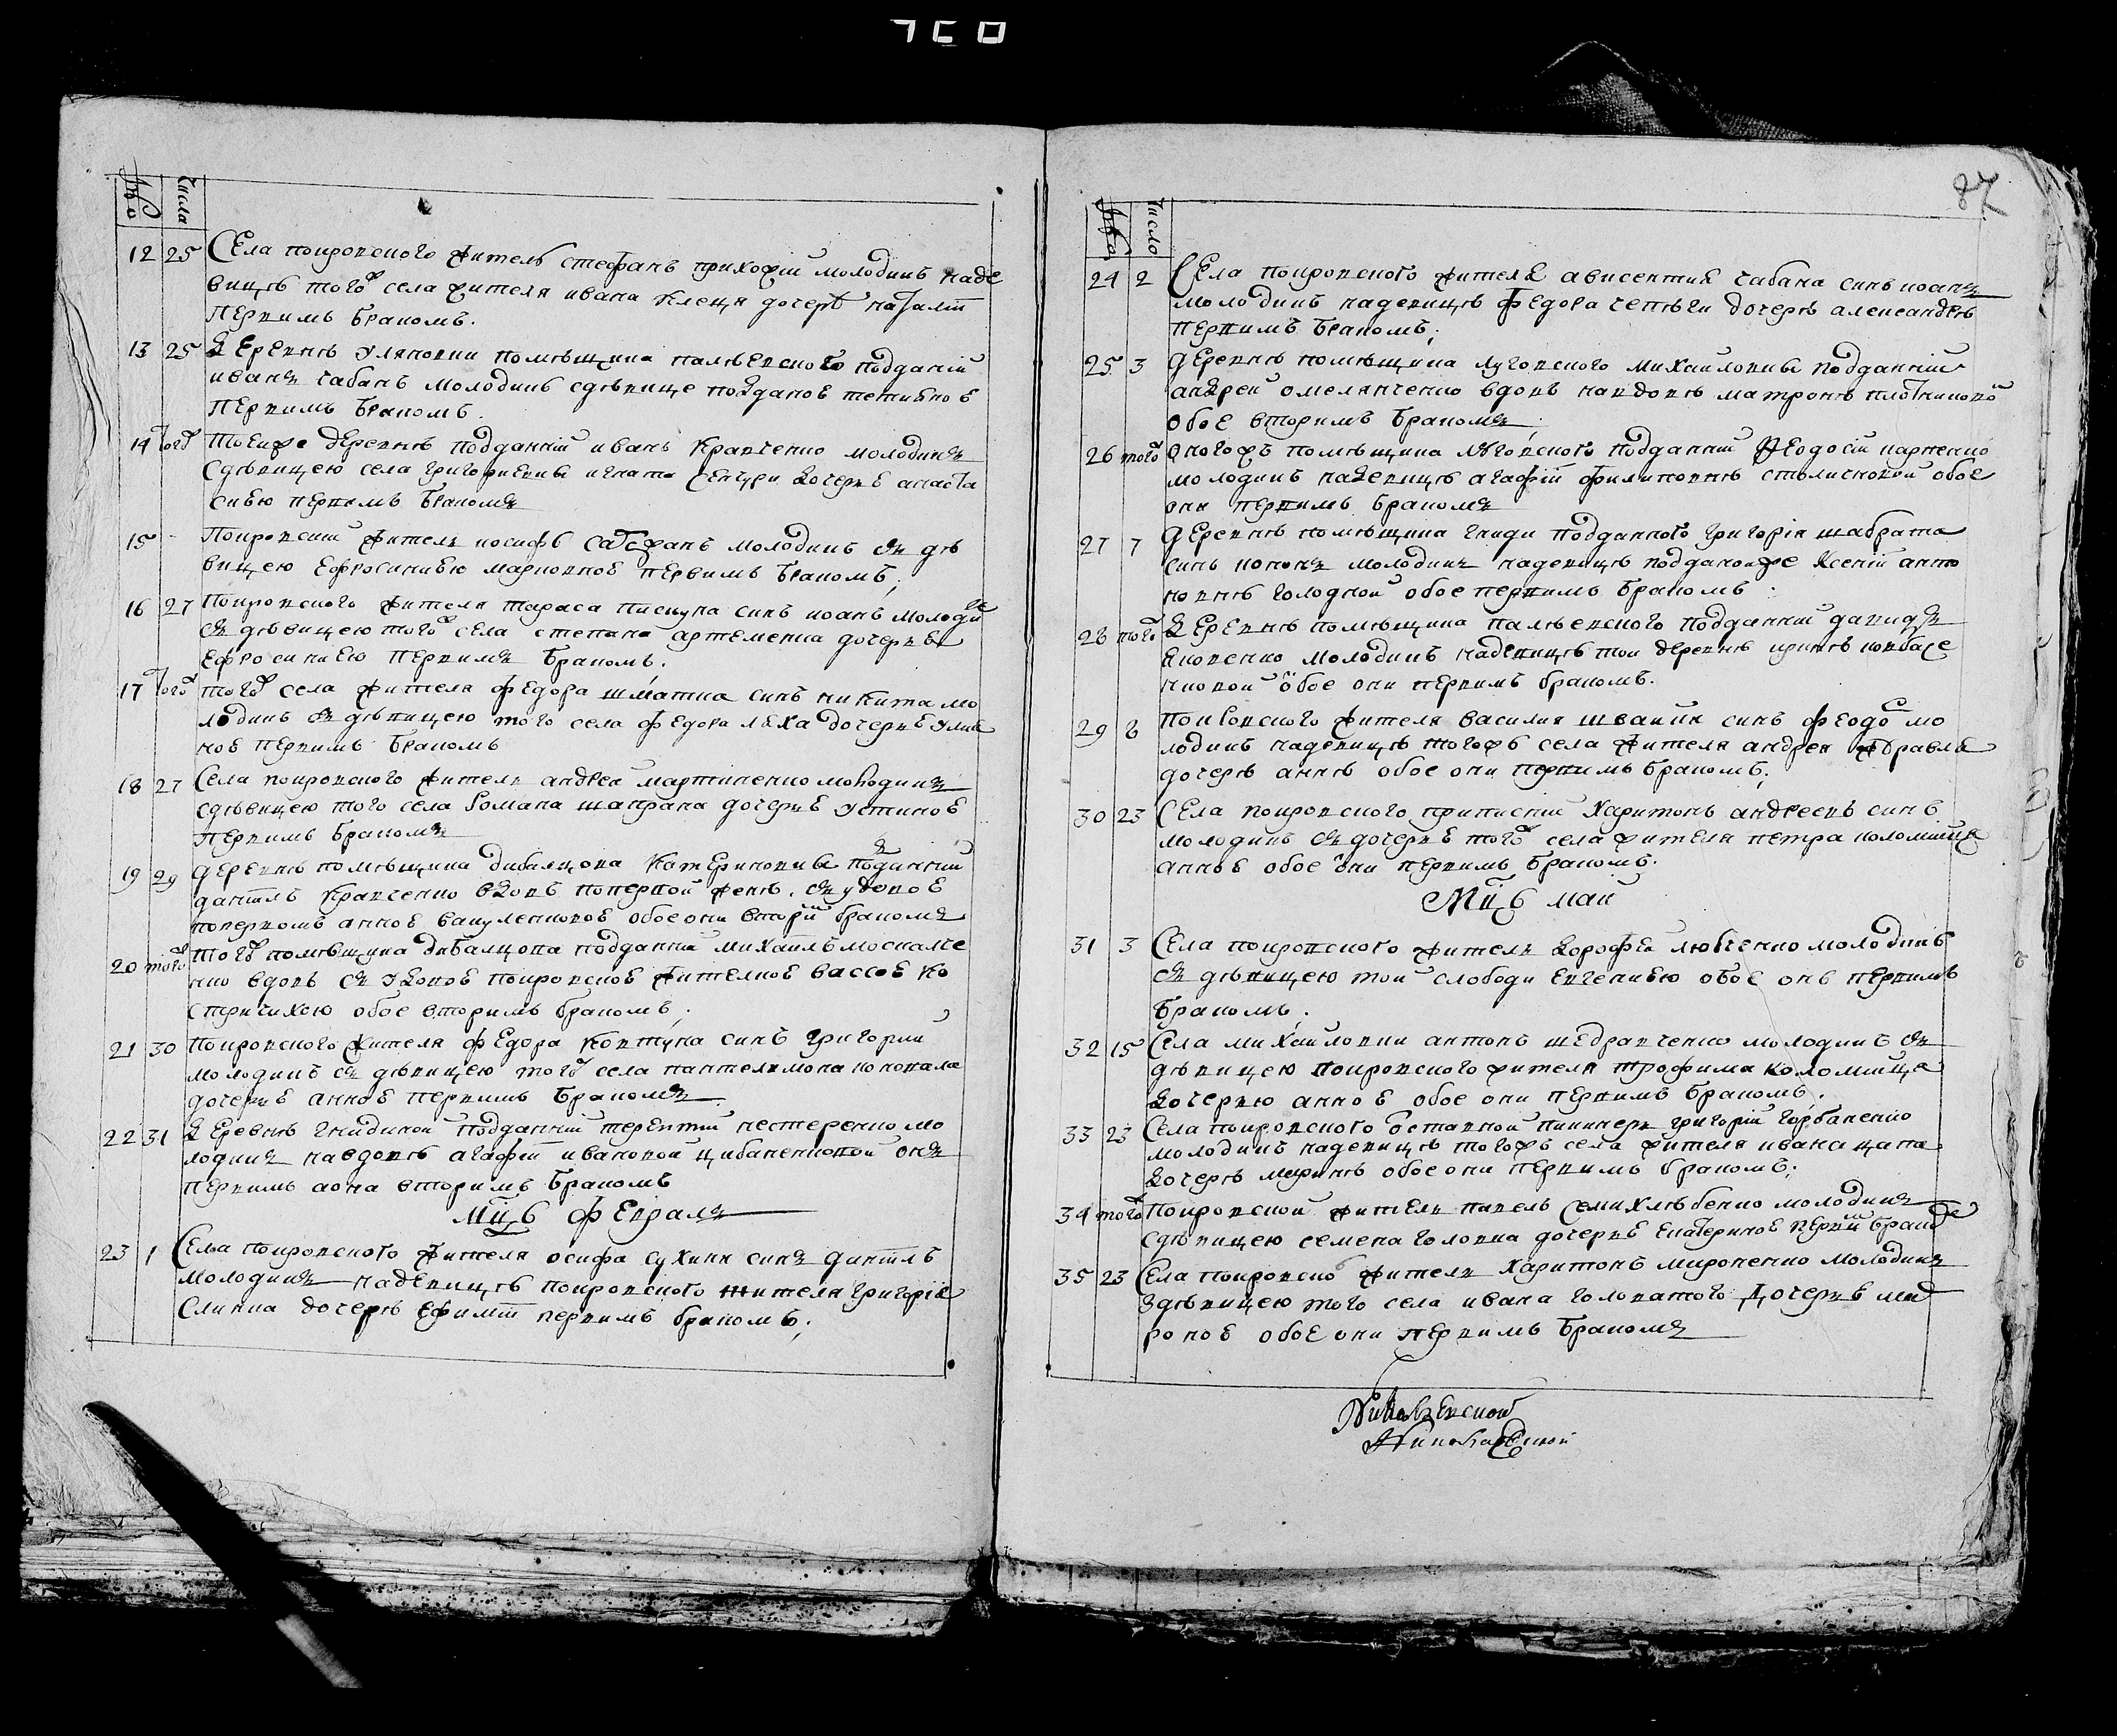 87
№ Числа
12 25 Села покровского житель стефанъ прихожій молодикъ на де
вицѣ того села жителя ивана клеця дочерѣ наталіи
первимъ бракомъ.
13 25 Деревнѣ Уляновки помѣщика палѣевского подданій
иванъ чабанъ молодикъ сдѣвице подданое
первимъ бракомъ.
14 того тоеижъ деревнѣ подданній иванъ кравченко молодикъ
сдѣвицею села григориевки игната дочерю анаста
сиею первимъ бракомъ
15 Покровский житель иосифъ молодикъ зъ дѣ
вицею ефросиниею первимъ бракомъ;
16 27 Покровского жителя тараса пискуна синъ иоанъ молоди
зъ дѣвицею того села степана артеменка дочерью
ефросиниею первимъ бракомъ.
17 того того села жителя федора шматка синъ никита мо
лодикъ зъ дѣвицею того села федора леха дочерью улия
ное первимъ бракомъ
18 27 Села покровского житель андрей мартиненко молодикъ
сдѣвицею того села романа шапрана дочерью устиное
первимъ бракомъ
19 29 деревнѣ помѣщика дибалцова катериновки подданній
даніилъ кравченко вдовъ поперъвой женѣ, зъ удовое
попервомъ анное вакуленковое обое они вторим бракомъ
20 того того помѣщика дибалцова подданій михаилъ москалче
нко вдовъ зъ удовое покровское жителкое вассое ко
стричихою обое вторимъ бракомъ;
21 30 покровского жителя федора ковтуна синъ григорий
молодикъ зъ дѣвицею того села пантелимона коновала
дочерью анное первимъ бракомъ
22 31 Деревнѣ гнидиной подданній терентій нестеренко мо
лодикъ навдовѣ агафіи ивановой цибаненковой онъ
первимъ аона вторимъ бракомъ
Мцъ февраль
23 1 Села покровского жителя осифа сухини синъ даніилъ
молодикъ надевицѣ покровского жителя григорія
сливка дочерѣ ефиміи первимъ бракомъ;
№ Число
24 2 Села покровского жителя авксентия чабана синъ иоанъ
молодикъ надевицѣ федора дочерѣ александрѣ
первимъ бракомъ;
25 3 деревнѣ помѣщика луговского михаиловки подданній
андрей омелянченко вдовъ навдовѣ матронѣ плотниковой
обое вторимъ бракомъ
26 того оногожъ помѣщика луговского подданній феодосій карпенко
молодикъ надевицѣ агафіи филиповнѣ столисковой обое
они первимъ бракомъ
27 7 деревнѣ помѣщика гниди подданного григорія шабрата
синъ кононъ молодикъ надевицѣ подданойже ксеніи анто
новнѣ голодной обое первимъ бракомъ
28 того Деревнѣ помѣщика палѣевского подданній давидъ
яковенко молодикъ надевицѣ той деревнѣ иринѣ ковбасе
нковой обое они первимъ бракомъ.
29 8 Покровского жителя василия швайки синъ феодо мо
лодикъ надевицѣ тогожъ села жителя андрея журавля
дочерѣ аннѣ обое они первимъ бракомъ;
30 23 Села покровского приписний харитонъ андреевъ синъ
молодикъ зъ дочерью того села жителя петра коломийця
анное обое они первимъ бракомъ.
Мцъ май
31 3 Села покровского житель дорофей любченко молодикъ
зъ дѣвицею той слободи евгениею обое онѣ первимъ
бракомъ;
32 15 Села михайловки антонъ шедравченко молодикъ зъ
дѣвицею покровского жителя трофима коломийца
дочерью анное обое они первимъ бракомъ.
33 23 Села покровского отставной пикинеръ григорій горбаненко
молодикъ надевицѣ тогожъ села жителя ивана цапа
дочерѣ маринѣ обое они первимъ бракомъ;
34 того Покровской житель павелъ семихлѣбенко молодикъ
сдѣвицею семена головка дочерью екатериное первим брако
35 23 Села покровско житель харитонъ мироненко молодикъ
здѣвицею того села ивана головатого дочерью мат
роное обое они первимъ бракомъ